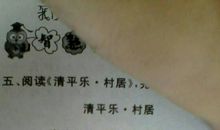 智慧
五、阅读《清平乐·村居》，完
清平乐·村居